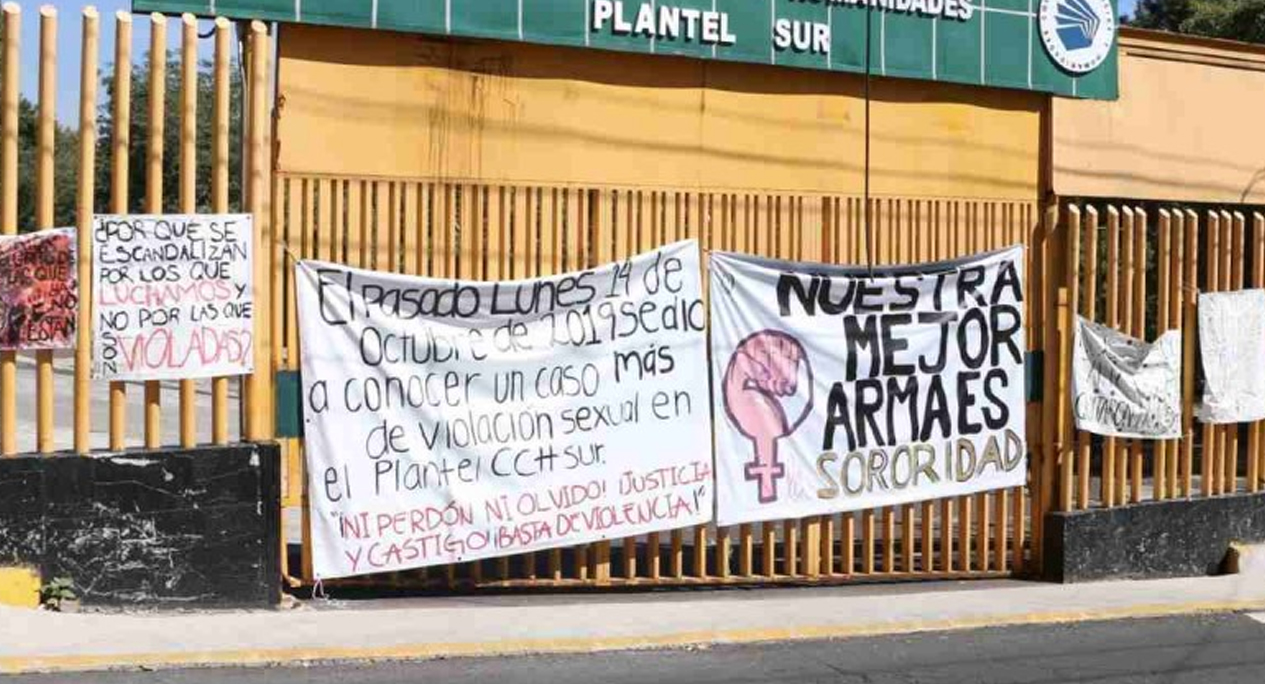 HUMANIDADES
PLANTEL SUR
QUE
NO
ESTAN
¿POR QUÉ SE
ESCANDALIZAN
POR LOS QUE
LUCHAMOS Y
NO POR LAS QUE
SON VIOLADAS?
El Pasado Lunes 14 de
Octubre de 2019 se dio
a conocer un caso más
de violación sexual en
el Plantel CCH sur.
"¡NI PERDÓN NI OLVIDO! ¡JUSTICIA
Y CASTIGO! ¡BASTA DE VIOLENCIA!"
NUESTRA
MEJOR
ARMA ES
SORORIDAD